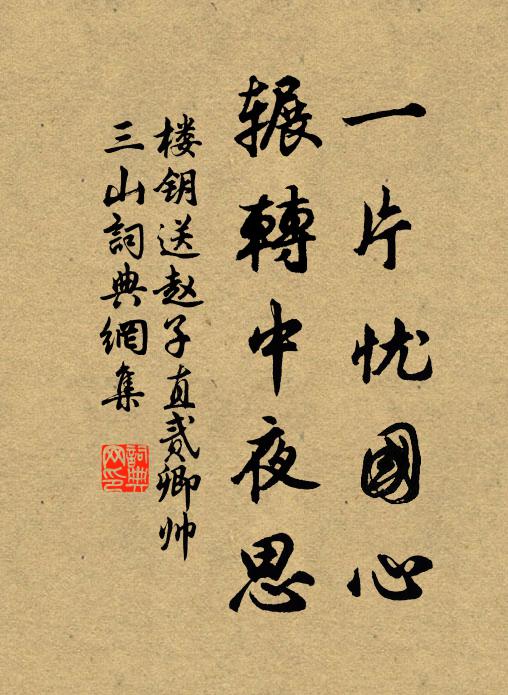 一片忧國心
辗轉中夜思
楼钥送赵子直贰卿帅
三山詞典網集
詞典
网印